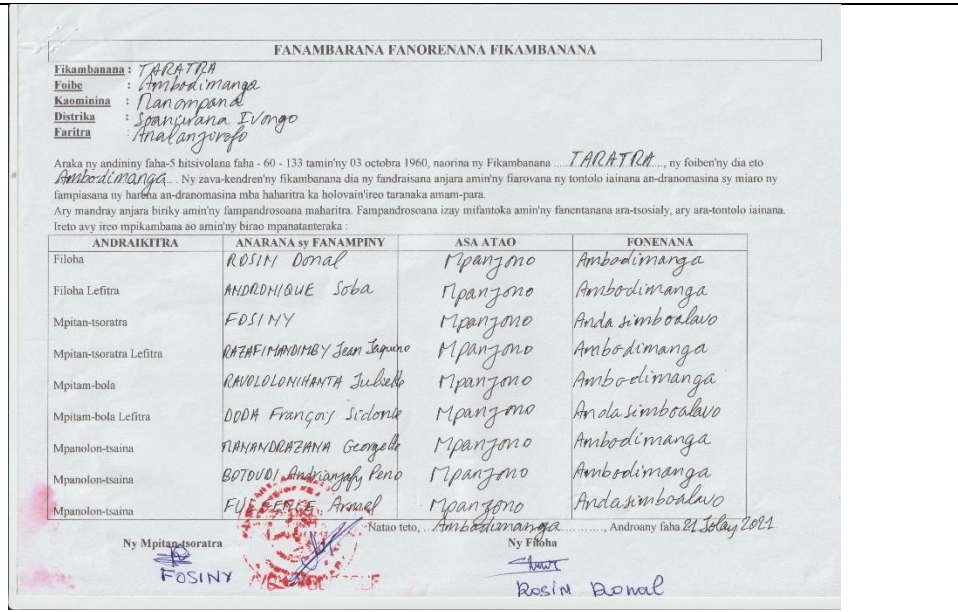 FANAMBARANA FANORENANA FIKAMBANANA
Fikambanana : TARATRA
Foibe : Ambodimanga
Kaominina : Manompana
Distrika : Soanierana Ivongo
Faritra : Analanjirofo
Araka ny andininy faha-5 hitsivolana faha - 60 - 133 tamin'ny 03 octobra 1960, naorina ny Fikambanana ..... TARATRA ...., ny foiben'ny dia eto
Ambodimanga... . Ny zava-kendren'ny fikambanana dia ny fandraisana anjara amin'ny fiarovana ny tontolo iainana an-dranomasina sy miaro ny
fampiasana ny harena an-dranomasina mba haharitra ka holovain'ireo taranaka amam-para.
Ary mandray anjara biriky amin'ny fampandrosoana maharitra. Fampandrosoana izay mifantoka amin'ny fanentanana ara-tsosialy, ary ara-tontolo iainana.
Ireto avy ireo mpikambana ao amin'ny birao mpanatanteraka :
ANDRAIKITRA ANARANA sy FANAMPINY ASA ATAO FONENANA
Filoha ROSIN Donal Mpanjono Ambodimanga
Filoha Lefitra ANDRONIQUE Soba Mpanjono Ambodimanga
Mpitan-tsoratra FOSINY Mpanjono Andasimboalavo
Mpitan-tsoratra Lefitra RAZAFIMANDIMBY Jean Jaquino Mpanjono Ambodimanga
Mpitam-bola RAVOLOLONIHANTA Juliette Mpanjono Ambodimanga
Mpitam-bola Lefitra DODA François Sidonie Mpanjono Andasimboalavo
Mpanolon-tsaina MANANDRAZANA Georgette Mpanjono Ambodimanga
Mpanolon-tsaina BOTOUDI Andrianjafy Peno Mpanjono Ambodimanga
Mpanolon-tsaina Armel Mpanjono Andasimboalavo
Natao teto, ... Ambodimanga ............, Androany faha 21 Jolay 2021
Ny Mpitan-tsoratra Ny Filoha
FOSINY Rosin Donal